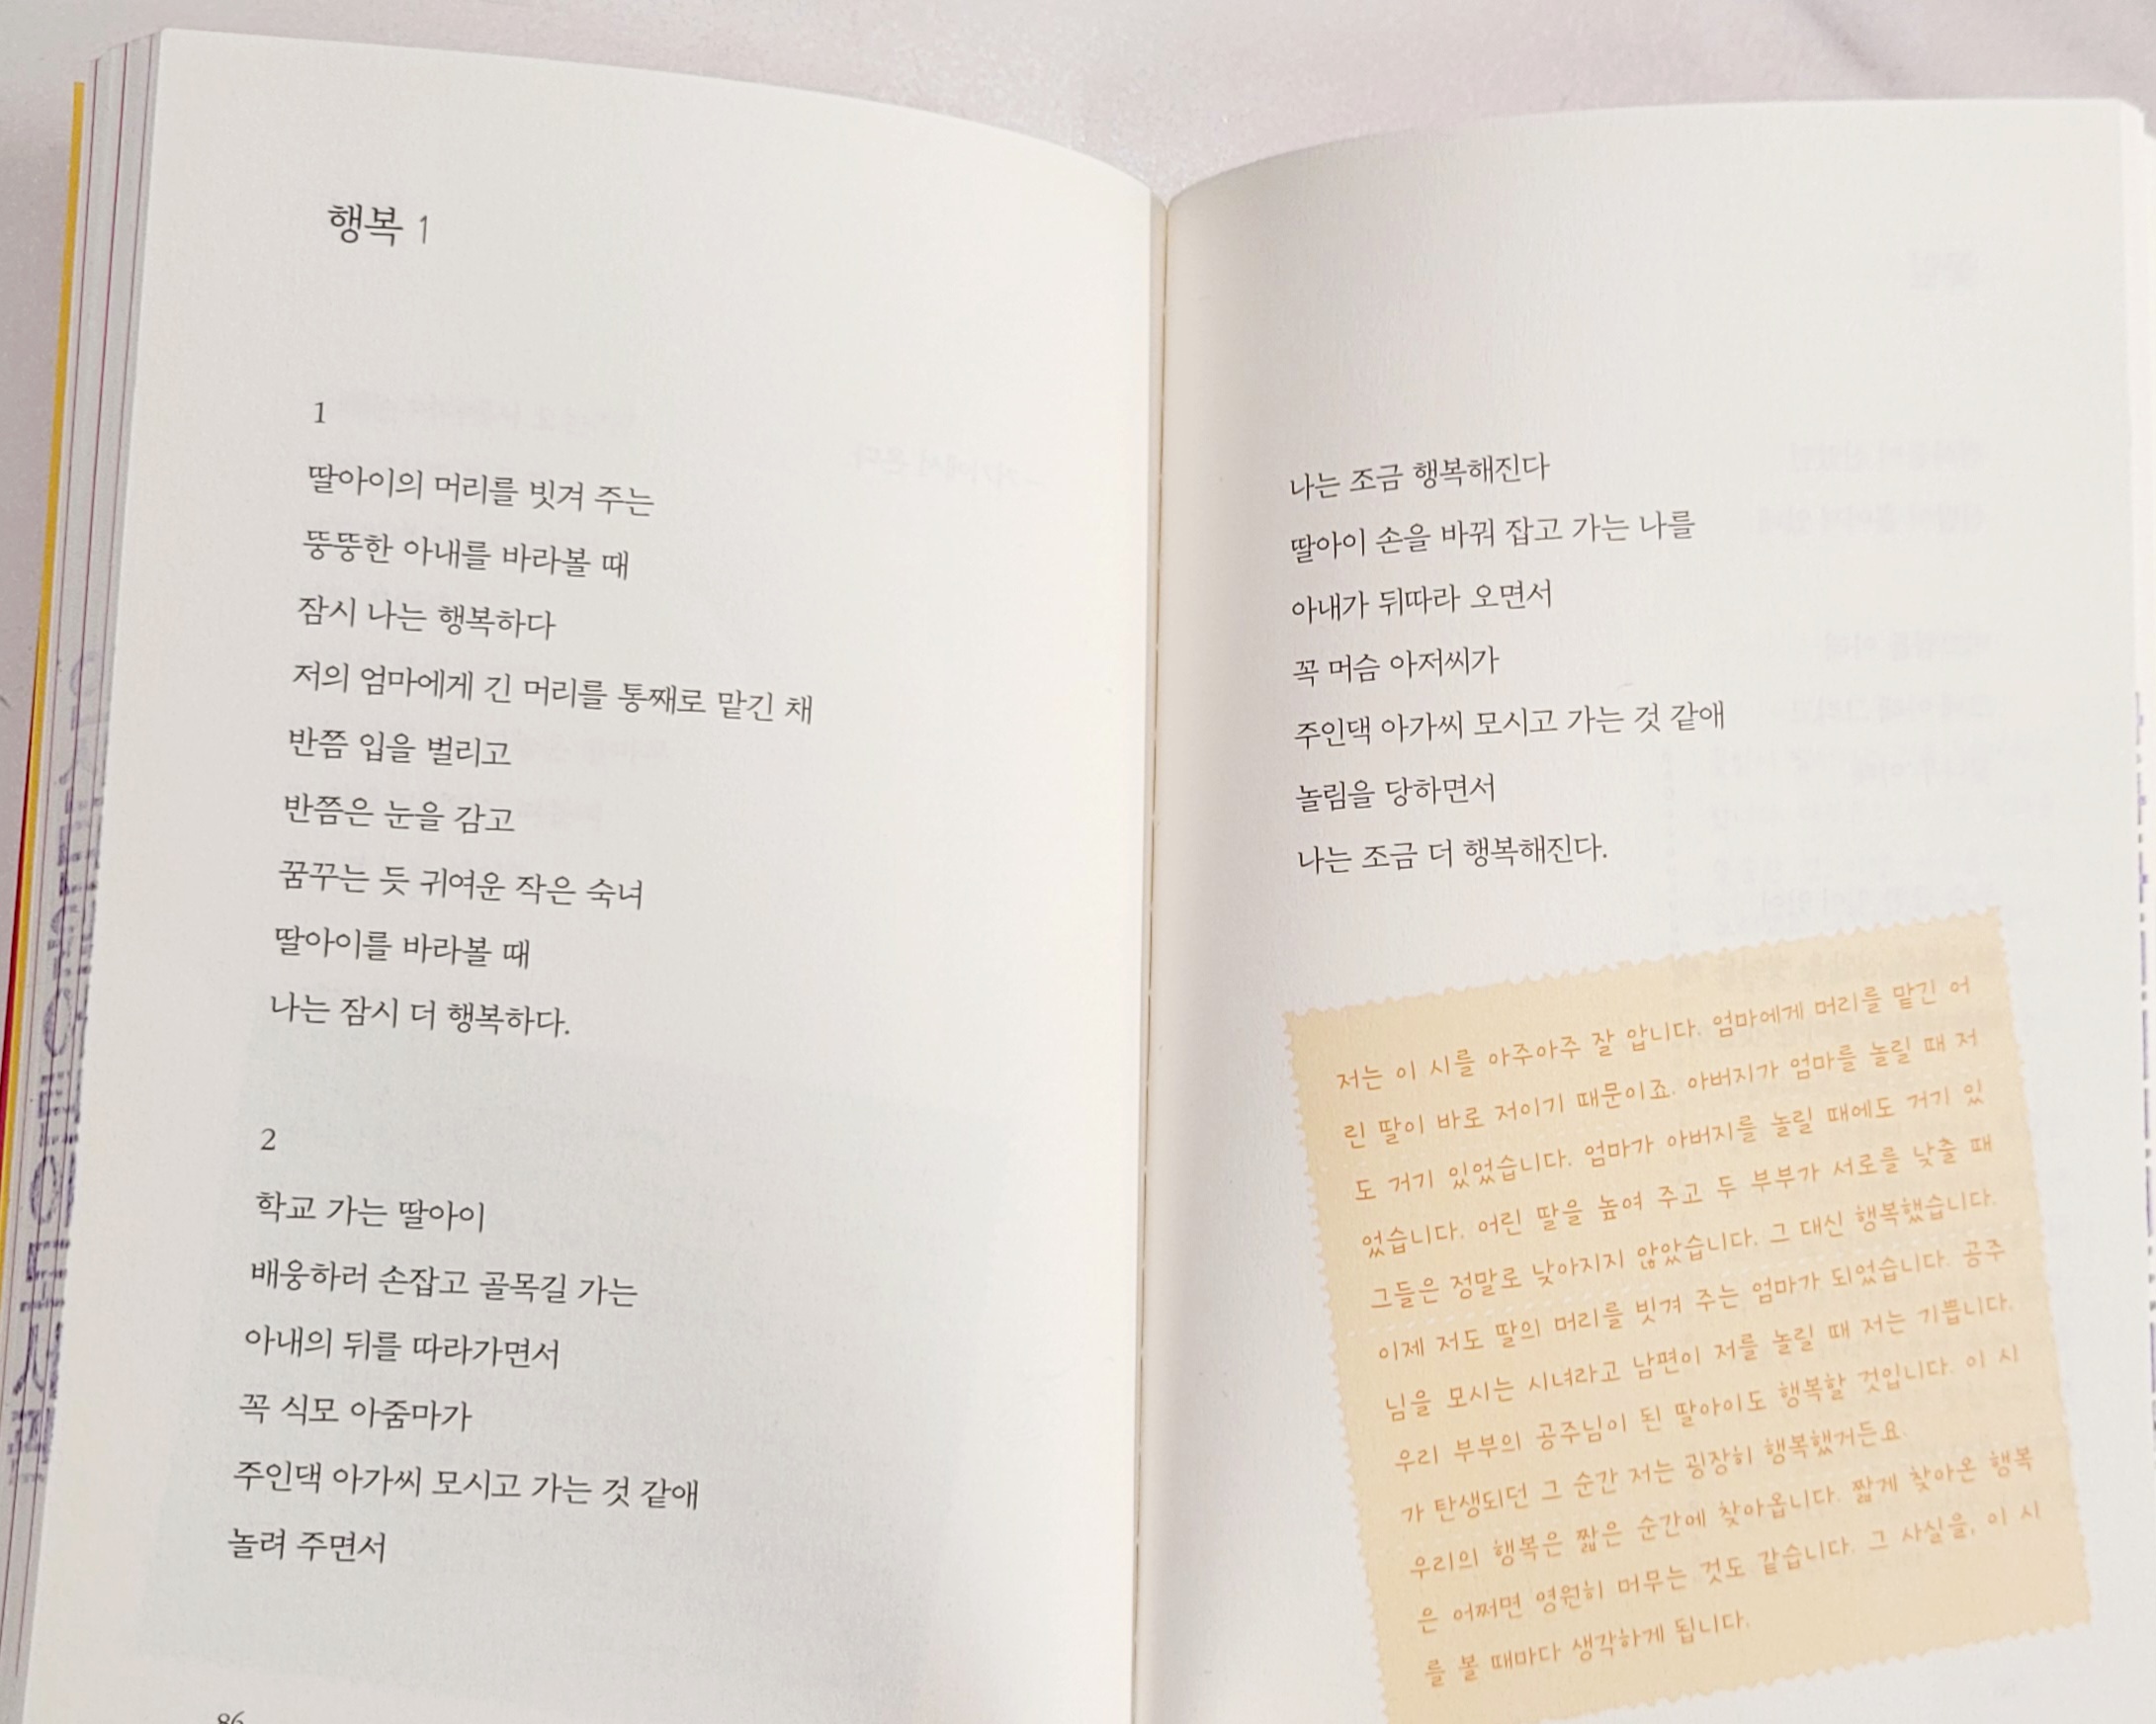 행복 1
1
딸아이의 머리를 빗겨 주는
뚱뚱한 아내를 바라볼 때
잠시 나는 행복하다
저의 엄마에게 긴 머리를 통째로 맡긴 채
반쯤 입을 벌리고
반쯤은 눈을 감고
꿈꾸는 듯 귀여운 작은 숙녀
딸아이를 바라볼 때
나는 잠시 더 행복하다.
2
학교 가는 딸아이
배웅하러 손잡고 골목길 가는
아내의 뒤를 따라가면서
꼭 식모 아줌마가
주인댁 아가씨 모시고 가는 것 같애
놀려 주면서
86
나는 조금 행복해진다
딸아이 손을 바꿔 잡고 가는 나를
아내가 뒤따라 오면서
꼭 머슴 아저씨가
주인댁 아가씨 모시고 가는 것 같애
놀림을 당하면서
나는 조금 더 행복해진다.
저는 이 시를 아주아주 잘 압니다. 엄마에게 머리를 맡긴 어
린 딸이 바로 저이기 때문이죠. 아버지가 엄마를 놀릴 때 저
도 거기 있었습니다. 엄마가 아버지를 놀릴 때에도 거기 있
었습니다. 어린 딸을 높여 주고 두 부부가 서로를 낮출 때
그들은 정말로 낮아지지 않았습니다. 그 대신 행복했습니다.
이제 저도 딸의 머리를 빗겨 주는 엄마가 되었습니다. 공주
님을 모시는 시녀라고 남편이 저를 놀릴 때 저는 기쁩니다.
우리 부부의 공주님이 된 딸아이도 행복할 것입니다. 이 시
가 탄생되던 그 순간 저는 굉장히 행복했거든요.
우리의 행복은 짧은 순간에 찾아옵니다. 짧게 찾아온 행복
은 어쩌면 영원히 머무는 것도 같습니다. 그 사실을, 이 시
를 볼 때마다 생각하게 됩니다.